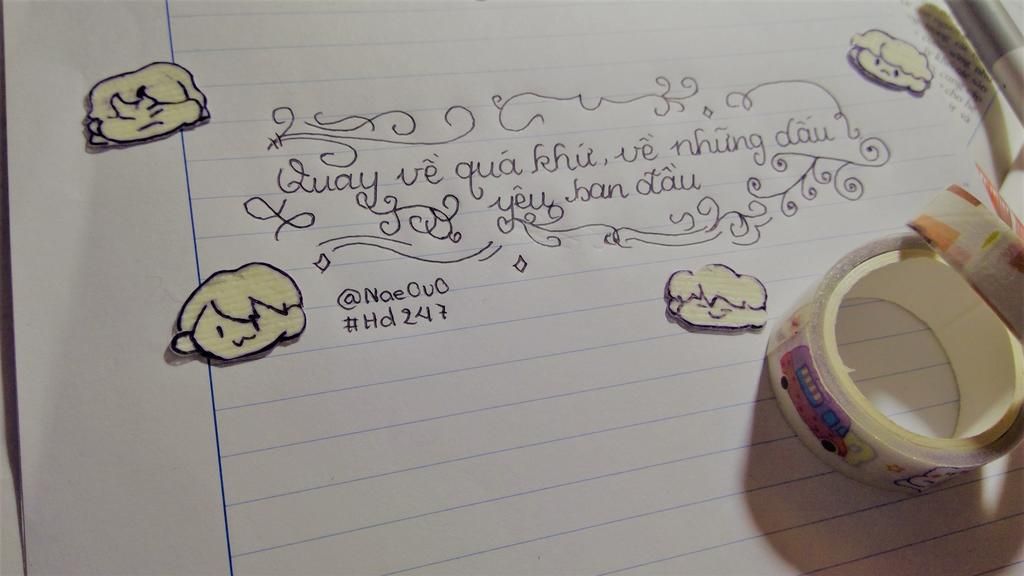 Quay về quá khứ, về những dấu
yêu ban đầu
@Nae0v0
#Hd247